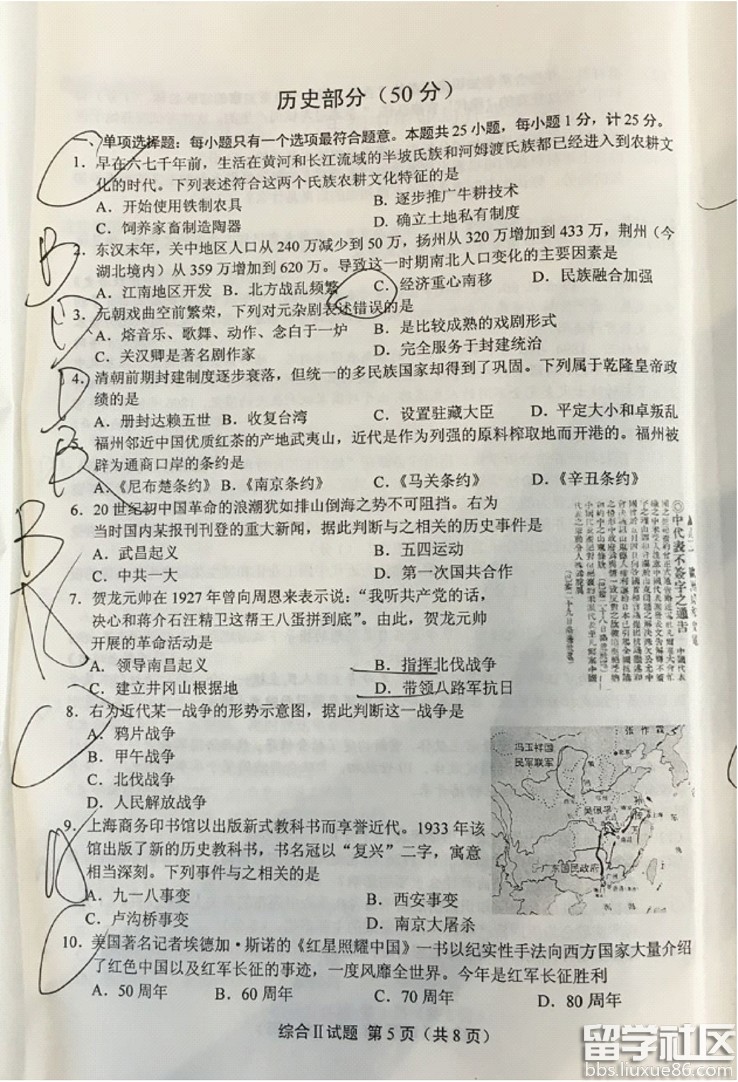 历史部分（50分）
一、单项选择题：每小题只有一个选项最符合题意。本题共25小题，每小题1分，计25分。
1．早在六七千年前，生活在黄河和长江流域的半坡氏族和河姆渡氏族都已经进入到农耕文
化的时代。下列表述符合这两个氏族农耕文化特征的是
A．开始使用铁制农具 B．逐步推广牛耕技术
C．饲养家畜制造陶器 D．确立土地私有制度
B
2．东汉末年，关中地区人口从240万减少到50万，扬州从320万增加到433万，荆州（今
湖北境内）从359万增加到620万。导致这一时期南北人口变化的主要因素是
A．江南地区开发 B．北方战乱频繁 C．经济重心南移 D．民族融合加强
D
3．元朝戏曲空前繁荣，下列对元杂剧表述错误的是
A．熔音乐、歌舞、动作、念白于一炉 B．是比较成熟的戏剧形式
C．关汉卿是著名剧作家 D．完全服务于封建统治
D
4．清朝前期封建制度逐步衰落，但统一的多民族国家却得到了巩固。下列属于乾隆皇帝政
绩的是
A．册封达赖五世 B．收复台湾 C．设置驻藏大臣 D．平定大小和卓叛乱
B
5．福州邻近中国优质红茶的产地武夷山，近代是作为列强的原料榨取地而开港的。福州被
辟为通商口岸的条约是
A.《尼布楚条约》 B.《南京条约》 C.《马关条约》 D.《辛丑条约》
B
6．20世纪初中国革命的浪潮犹如排山倒海之势不可阻挡。右为
当时国内某报刊刊登的重大新闻，据此判断与之相关的历史事件是
A．武昌起义 B．五四运动
C．中共一大 D．第一次国共合作
◎中代表不签字之通告
7．贺龙元帅在1927年曾向周恩来表示说：“我听共产党的话，
决心和蒋介石汪精卫这帮王八蛋拼到底”。由此，贺龙元帅
开展的革命活动是
A．领导南昌起义 B．指挥北伐战争
C．建立井冈山根据地 D．带领八路军抗日
C
8．右为近代某一战争的形势示意图，据此判断这一战争是
A．鸦片战争
B．甲午战争
C．北伐战争
D．人民解放战争
张作霖
冯玉祥国
民军联军
吴佩孚
广东国民政府
9．上海商务印书馆以出版新式教科书而享誉近代。1933年该
馆出版了新的历史教科书，书名冠以“复兴”二字，寓意
相当深刻。下列事件与之相关的是
A．九一八事变 B．西安事变
C．卢沟桥事变 D．南京大屠杀
10．美国著名记者埃德加·斯诺的《红星照耀中国》一书以纪实性手法向西方国家大量介绍
了红色中国以及红军长征的事迹，一度风靡全世界。今年是红军长征胜利
A．50周年 B．60周年 C．70周年 D．80周年
综合Ⅱ试题 第5页（共8页）
留学社区
bbs.liuxue86.com